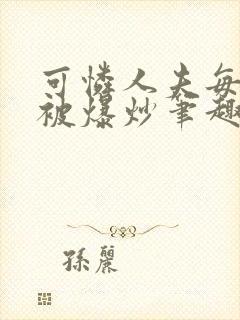 可憐人夫每
被爆炒筆趣
孫麗